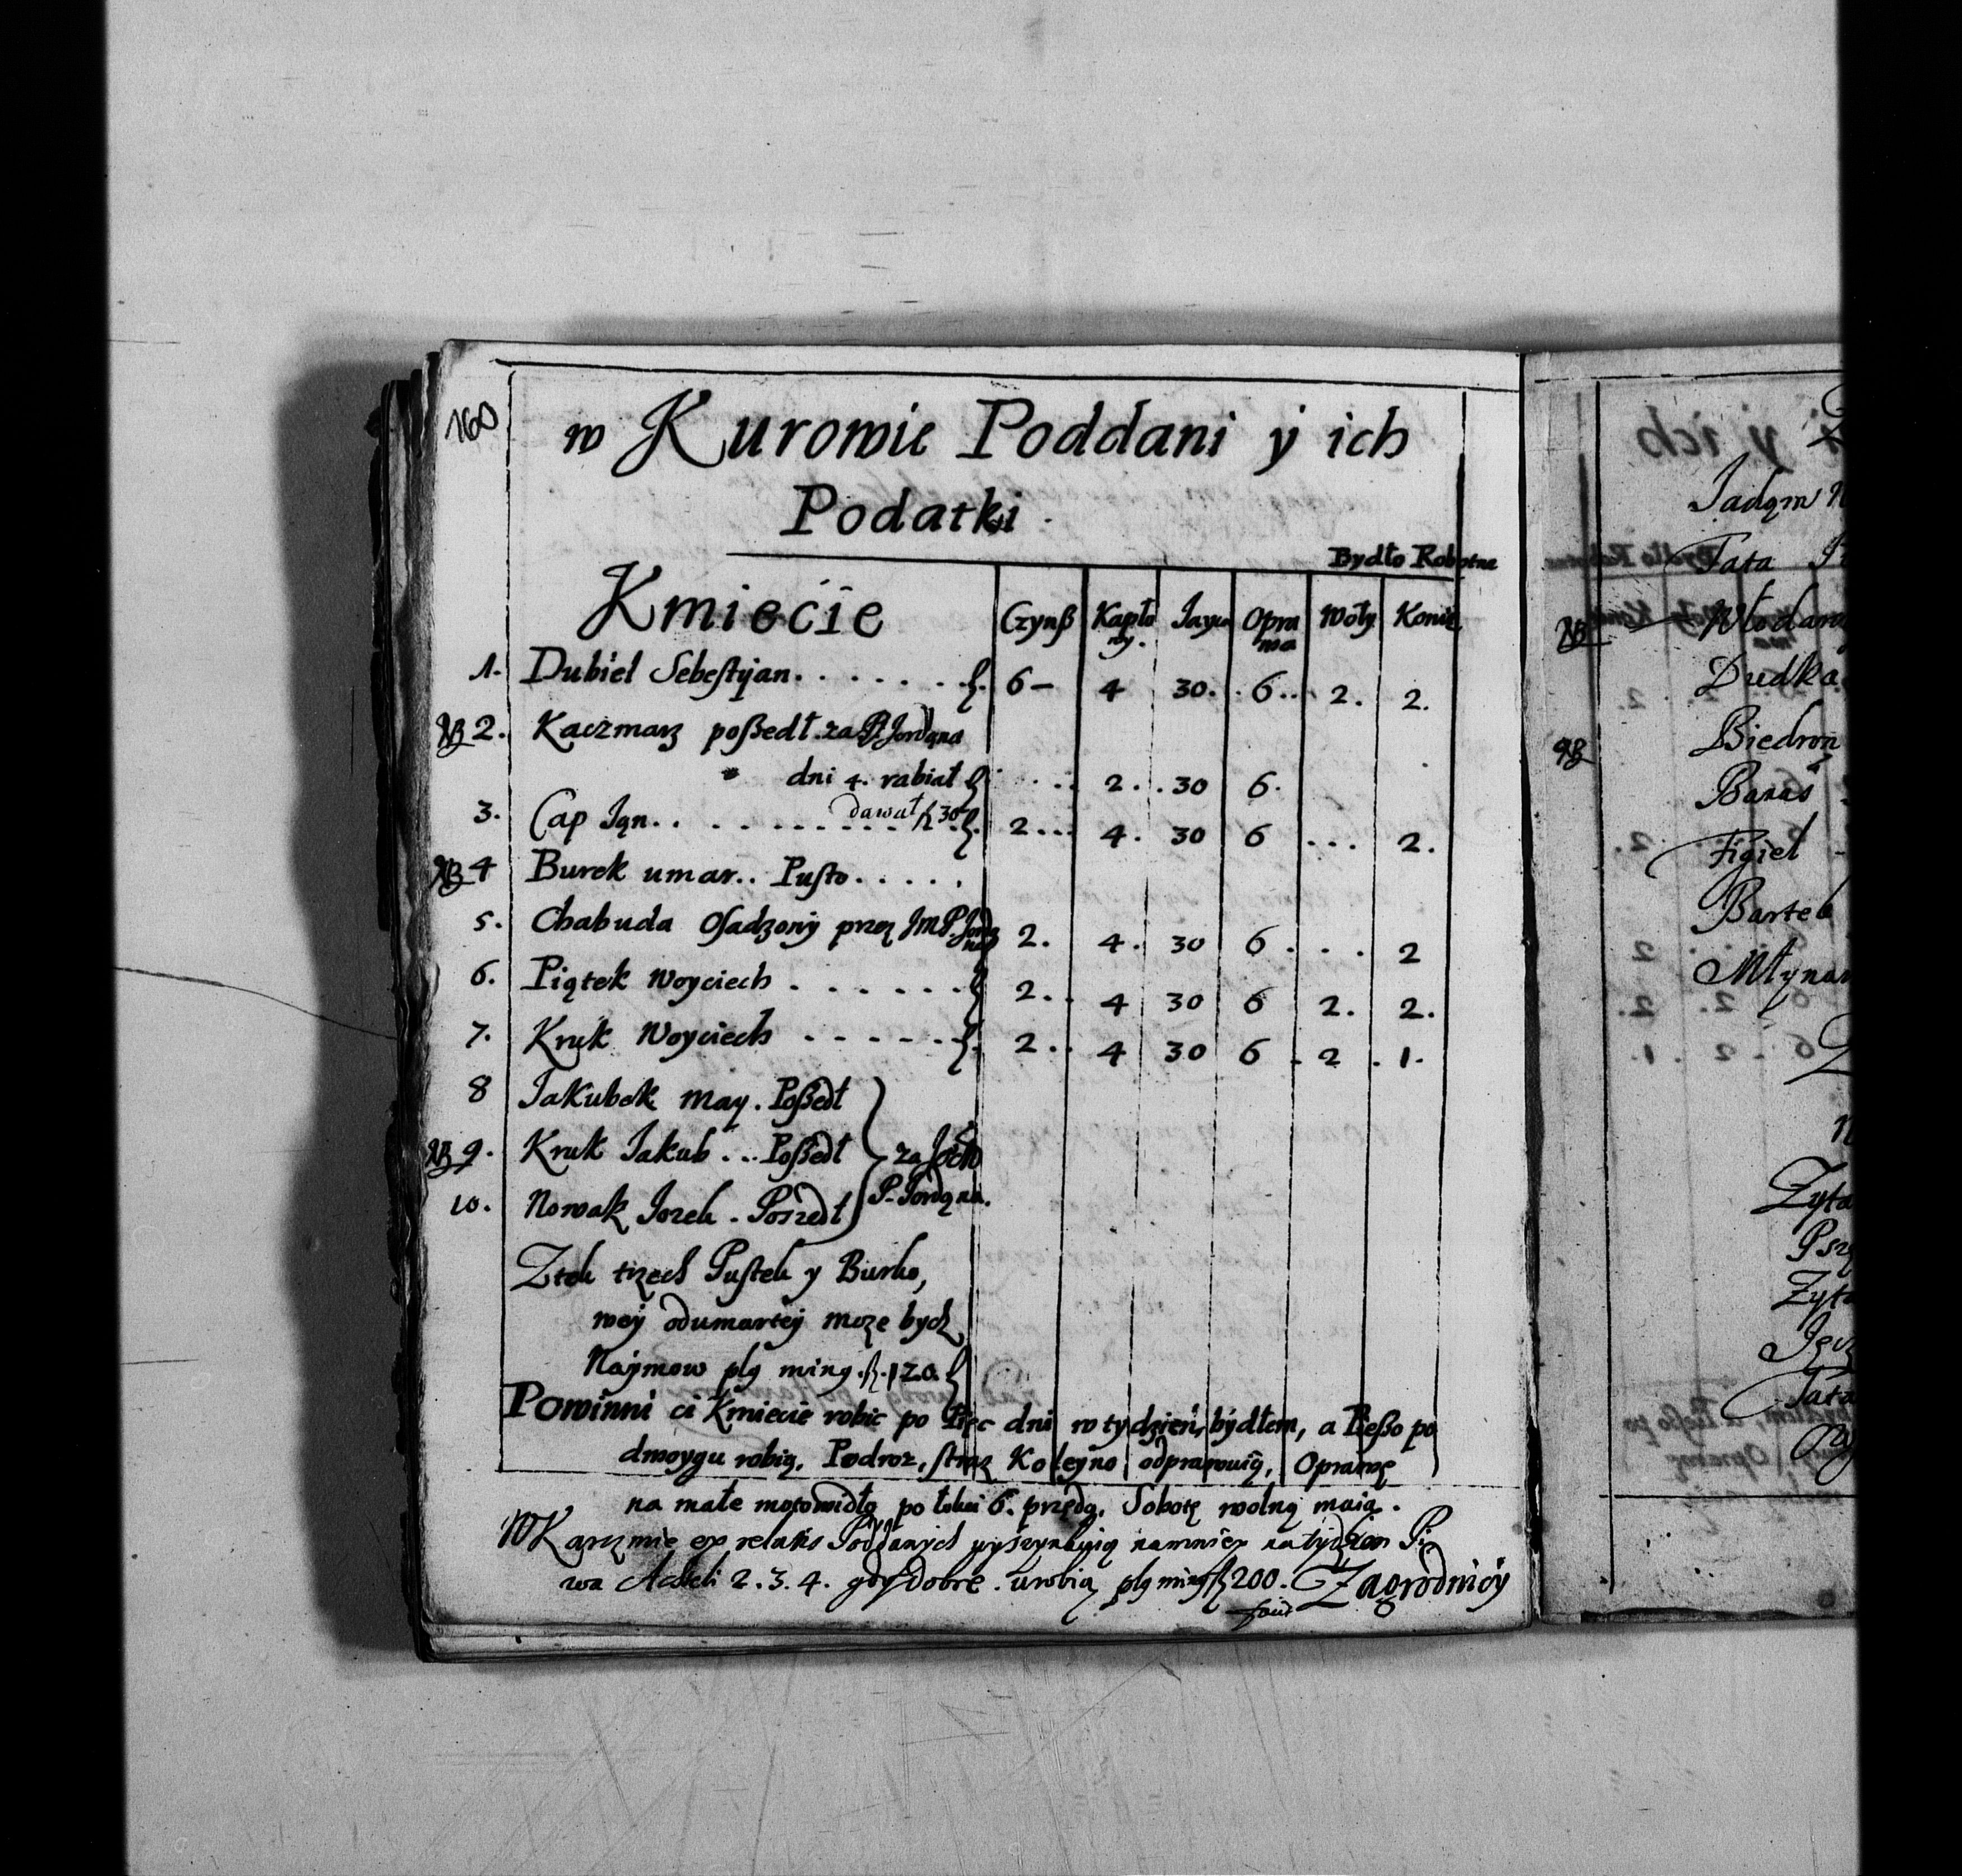 160
w Kurowie Poddani ÿ ich
Podatki.
Bydło Robotne
Kmiecie Czynß Kapłony. Jayca Oprawa Woły Konie
1. Dubiel Sebestÿan. . . . . . . 6 – 4 30. 6.. 2. 2.
NB 2. Kaczmarz poßedł. za P. Jordana
dni 4. rabiał . . . 2. . 30 6.
dawał 30
3. Cap Jan. . . . . . . . . . 2... 4. 30 6 ... 2.
NB 4 Burek umar.. Pusto. . . . .
5. Chabuda Osadzonÿ przez JmP. Jordana 2. 4. 30 6 . . . 2
6. Piątek Woyciech . . . . . . 2.. 4 30 6 2. 2.
7. Kruk Woyciech . . . . . . 2.. 4 30 6 . 2 . 1.
8 Jakubek May. Poßedł
NB 9. Kruk Jakub... Poßedł za
10. Nowak Jozek - Poszedł P. Jordana.
Ztch trzech Pustek y Burko,
weÿ odumarłeÿ może bydź
Naÿmow plg ming. 120.
Powinni ci Kmiecie robic po Pięc dni w tydzień, bÿdłem, a Pießo po
dwoygu robią. Podroż, straż Koleÿno odprawuią, Oprawę
na małe motowidło po łokci 6. przędą. Sobotę wolną maią.
W Karczmie ex relatis Poddanych wyszynkuią namniey na tydzien Pi
wa Achteli 2. 3. 4. gdy dobre. urobią plg ming 200. Zagrodnicÿ
NB
Jadąm
Tata
Włodar
Dudka
NB
Biedroń
Baraś
Figiel
Bartek
Młynar
Zyta
Zyta
Tata